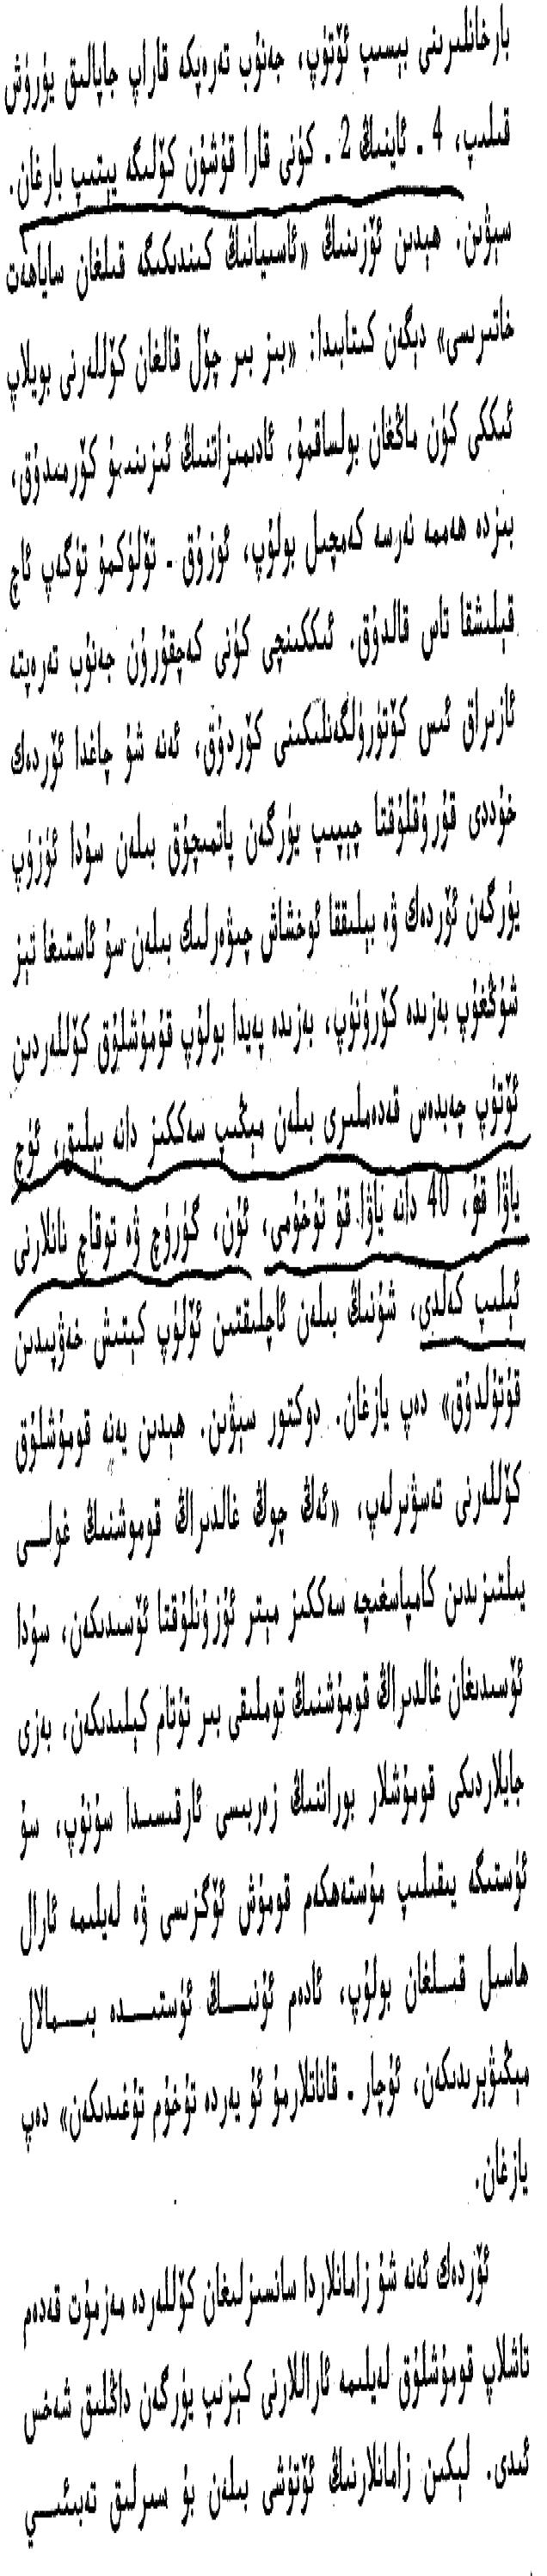 بارخانلىرىنى بېسىپ ئۆتۈپ، جەنۇب تەرەپكە قاراپ جاپالىق يۈرۈش
قىلىپ، 4 ـ ئاينىڭ 2 ـ كۈنى قارا قۇشۇن كۆلىگە يېتىپ بارغان.
سېۋىن؛ ھېدىن ئۆزىنىڭ «ئاسىيانىڭ كىندىكىگە قىلغان ساياھەت
خاتىرىسى» دېگەن كىتابىدا: «بىز بىر چۆل قالغان كۆللەرنى بويلاپ
ئىككى كۈن ماڭغان بولساقمۇ، ئادىمىزاتنىڭ ئىزىنىمۇ كۆرمىدۇق،
بىزدە ھەممە نەرسە كەمچىل بولۇپ، ئوزۇق ـ تۆلۈكمۇ تۈگەپ ئاچ
قېلىشقا تاس قالدۇق. ئىككىنچى كۈنى كەچقۇرۇن جەنۇب تەرەپتە
ئازىراق ئىس كۆتۈرۈلگەنلىكىنى كۆردۇق، ئەنە شۇ چاغدا ئۆردەك
خۇددى قۇرۇقلۇقتا چېپىپ يۈرگەن پاتمىچۇق بىلەن سۇدا ئۈزۈپ
يۈرگەن ئۆردەك ۋە بېلىققا ئوخشاش چىۋەرلىك بىلەن سۇ ئاستىغا تېز
شۇڭغۇپ بەزىدە كۆرۈنۈپ، بەزىدە پەيدا بولۇپ قۇمۇشلۇق كۆللەردىن
ئۆتۈپ چەبدەس قەدەملىرى بىلەن مېڭىپ سەككىز دانە بېلىق، ئۈچ
ياۋا قۇ، 40 دانە ياۋا قۇ تۇخۇمى، ئۇن، گۈرۈچ ۋە توقاچ نانلارنى
ئېلىپ كەلدى، شۇنىڭ بىلەن ئاچلىقتىن ئۆلۈپ كېتىش خەۋپىدىن
قۇتۇلدۇق» دەپ يازغان. دوكتور سېۋىن. ھېدىن يەنە قومۇشلۇق
كۆللەرنى تەسۋىرلەپ، «ئەڭ چوڭ غالدىراڭ قوموشنىڭ غولـــى
يىلتىزىدىن كامپاسغىچە سەككىز مېتر ئۇزۇنلۇقتا ئۆسىدىكەن، سۇدا
ئۆسىدىغان غالدىراڭ قومۇشنىڭ توملىقى بىر تۇتام كېلىدىكەن، بەزى
جايلاردىكى قومۇشلار بوراننىڭ زەربىسى ئارقىسىدا سۇنۇپ، سۇ
ئۈستىگە يىقىلىپ مۇستەھكەم قومۇش ئۆگزىسى ۋە لەيلىمە ئارال
ھاسىل قىـــلغان بولۇپ، ئادەم ئۇنىـــڭ ئۈستىـــدە بىـــمالال
مېڭىۋېرىدىكەن، ئۇچار ـ قاناتلارمۇ ئۇ يەردە تۇخۇم تۇغىدىكەن» دەپ
يازغان.
ئۆردەك ئەنە شۇ زامانلاردا سانسىزلىغان كۆللەردە مەزمۇت قەدەم
تاشلاپ قومۇشلۇق لەيلىمە ئاراللارنى كېزىپ يۈرگەن داڭلىق شەخس
ئىدى. لېكىن زامانلارنىڭ ئۆتۈشى بىلەن بۇ سىرلىق تەبىئىـــي